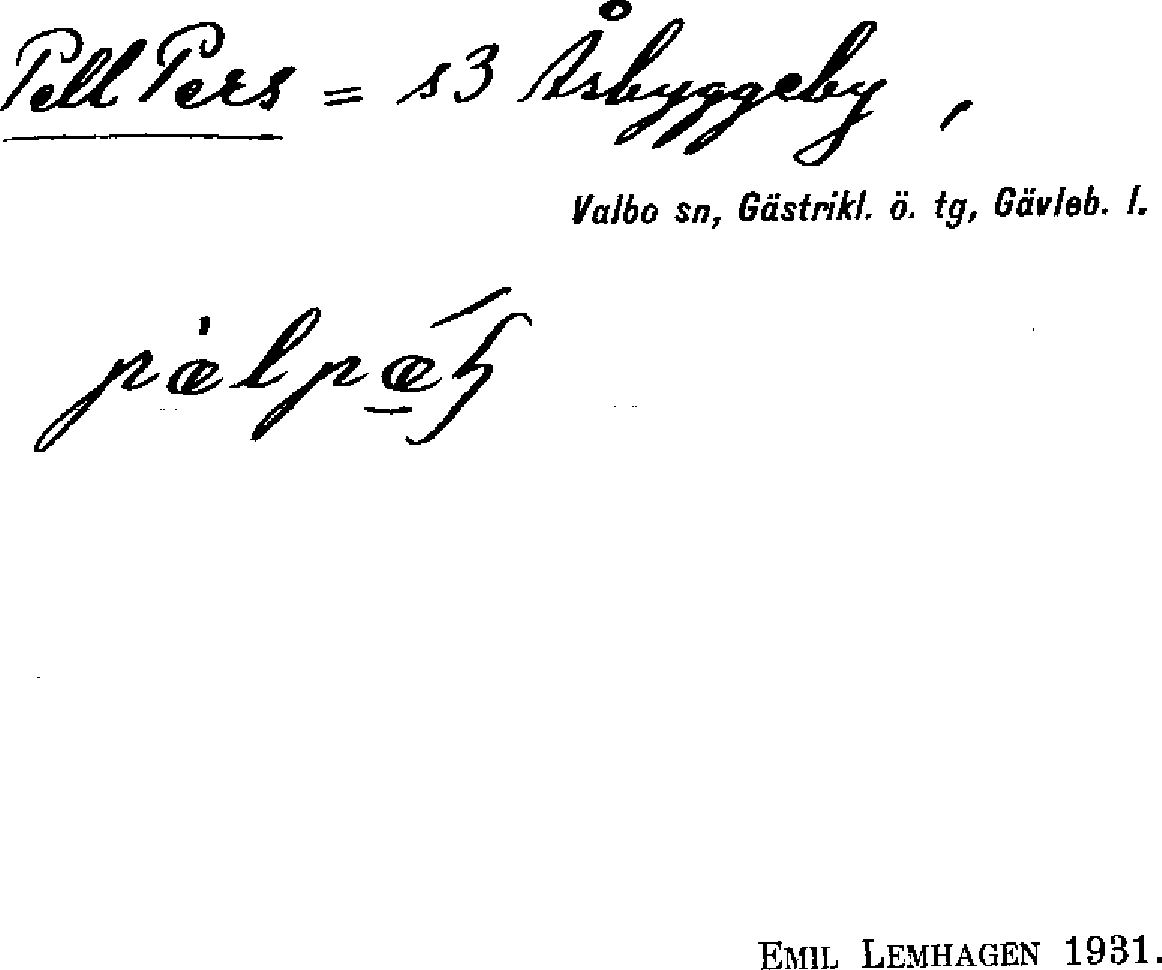 Pell Pers = s3 Åsbyggeby,
Valbo sn, Gästrikl. ö. tg, Gävleb. l.
EMIL LEMHAGEN 1931.